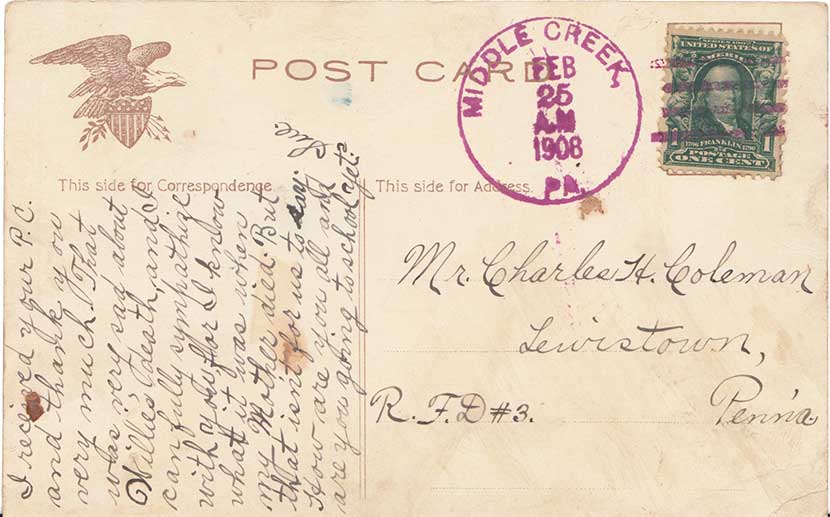 POST CARD
MIDDLE CREEK,
FEB
25
A.M
1908
PA.
SERIES 1902
UNITED STATES OF
AMERICA
1706 FRANKLIN 1790
POSTAGE
ONE CENT
1
This side for Correspondence
This side for Address.
I recieved your P.C.
and thank you
very much. That
was very sad about
Willie's death, and I
can fully sympathize
with you, for I know
what it was when
my Mother died. But
that isn't for us to say.
How are you all and
are you going to school yet?
Mr. Charles H. Coleman
Lewistown,
R.F.D #3.
Penn'a